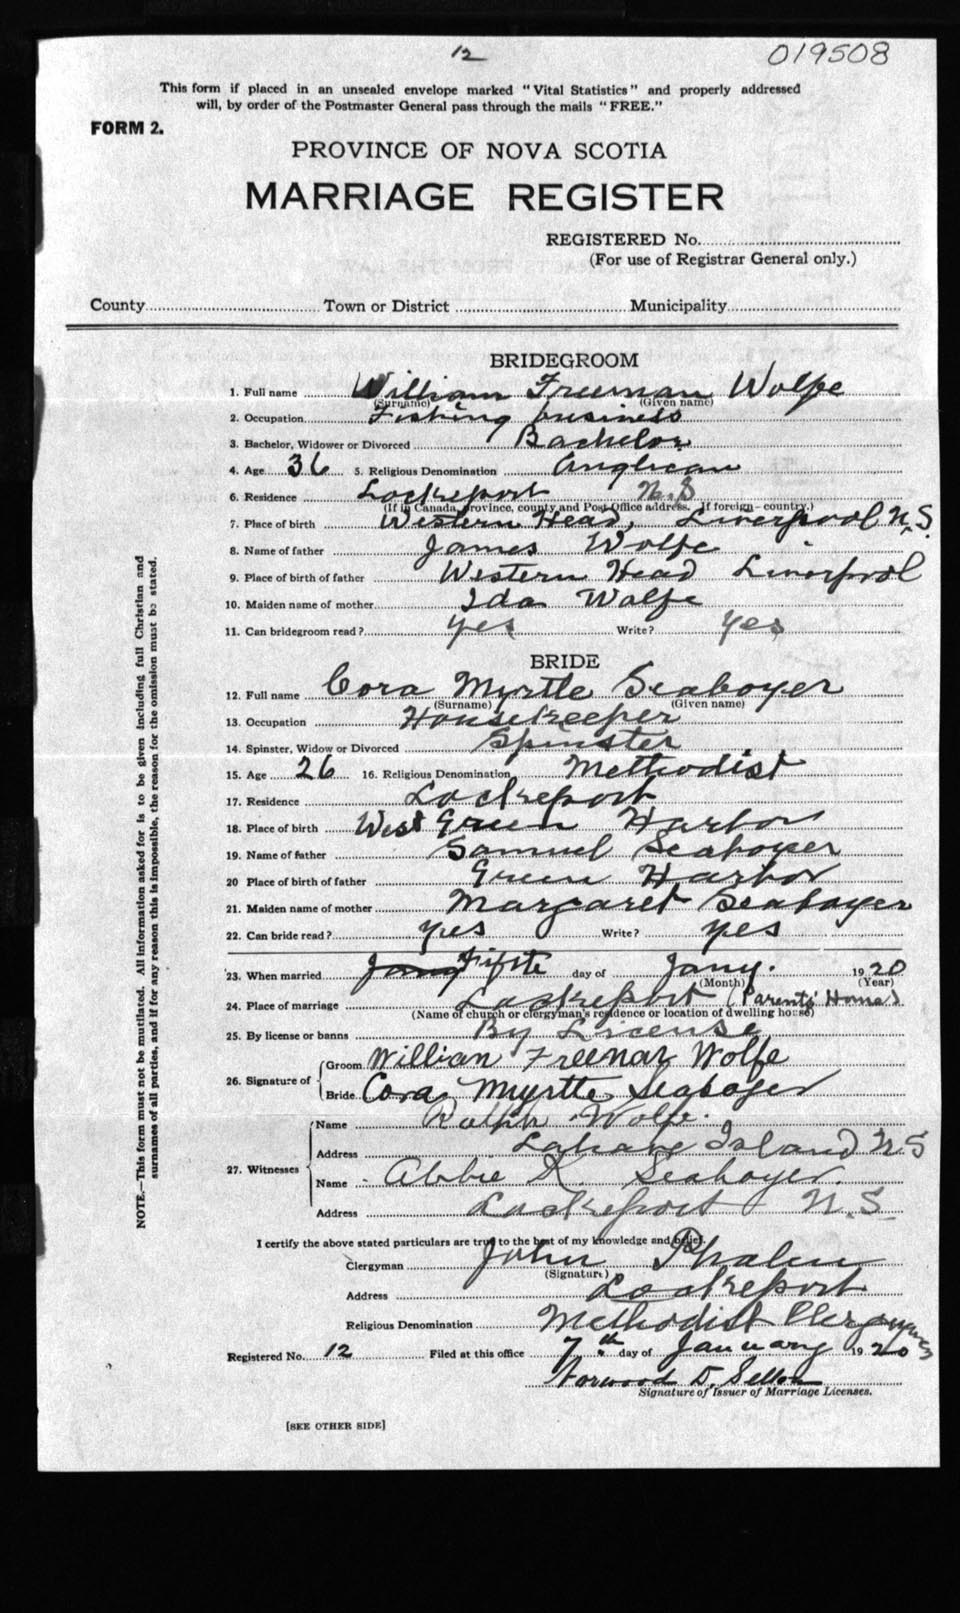 12
019508
This form if placed in an unsealed envelope marked "Vital Statistics" and properly addressed
will, by order of the Postmaster General pass through the mails "FREE."
FORM 2.
PROVINCE OF NOVA SCOTIA
MARRIAGE REGISTER
REGISTERED No.
(For use of Registrar General only.)
County Town or District Municipality
BRIDEGROOM
1. Full name William Freeman Wolfe
(Surname) (Given name)
2. Occupation Fishing business
3. Bachelor, Widower or Divorced Bachelor
4. Age 36 5. Religious Denomination Anglican
6. Residence Lockeport N.S
(If in Canada, province, county and Post Office address. If foreign-country.)
7. Place of birth Western Head, Liverpool N.S.
8. Name of father James Wolfe
9. Place of birth of father Western Head Liverpool
10. Maiden name of mother Ida Wolfe
11. Can bridegroom read? yes Write? yes
BRIDE
12. Full name Cora Myrtle Seaboyer
(Surname) (Given name)
13. Occupation Housekeeper
14. Spinster, Widow or Divorced Spinster
15. Age 26 16. Religious Denomination Methodist
17. Residence Lockeport
18. Place of birth West Green Harbor
19. Name of father Samuel Seaboyer
20 Place of birth of father Green Harbor
21. Maiden name of mother Margaret Seaboyer
22. Can bride read? yes Write? yes
23. When married Jany Fifth day of Jany. 1920
(Month) (Year)
24. Place of marriage Lockeport (Parents' Home)
(Name of church or clergyman's residence or location of dwelling house)
25. By license or banns By License
26. Signature of Groom William Freeman Wolfe
Bride Cora Myrtle Seaboyer
27. Witnesses Name Ralph Wolfe.
Address Lahave Island N.S
Name Abbie K. Seaboyer.
Address Lockeport N.S.
I certify the above stated particulars are true to the best of my knowledge and belief.
Clergyman John Phalen
(Signature)
Address Lockeport
Religious Denomination Methodist Clergyman
Registered No. 12 Filed at this office 7th day of January 1920
Norwood D. Sellon
Signature of Issuer of Marriage Licenses.
[SEE OTHER SIDE]
NOTE.—This form must not be mutilated. All information asked for is to be given including full Christian and
surnames of all parties, and if for any reason this is impossible, the reason for the omission must be stated.